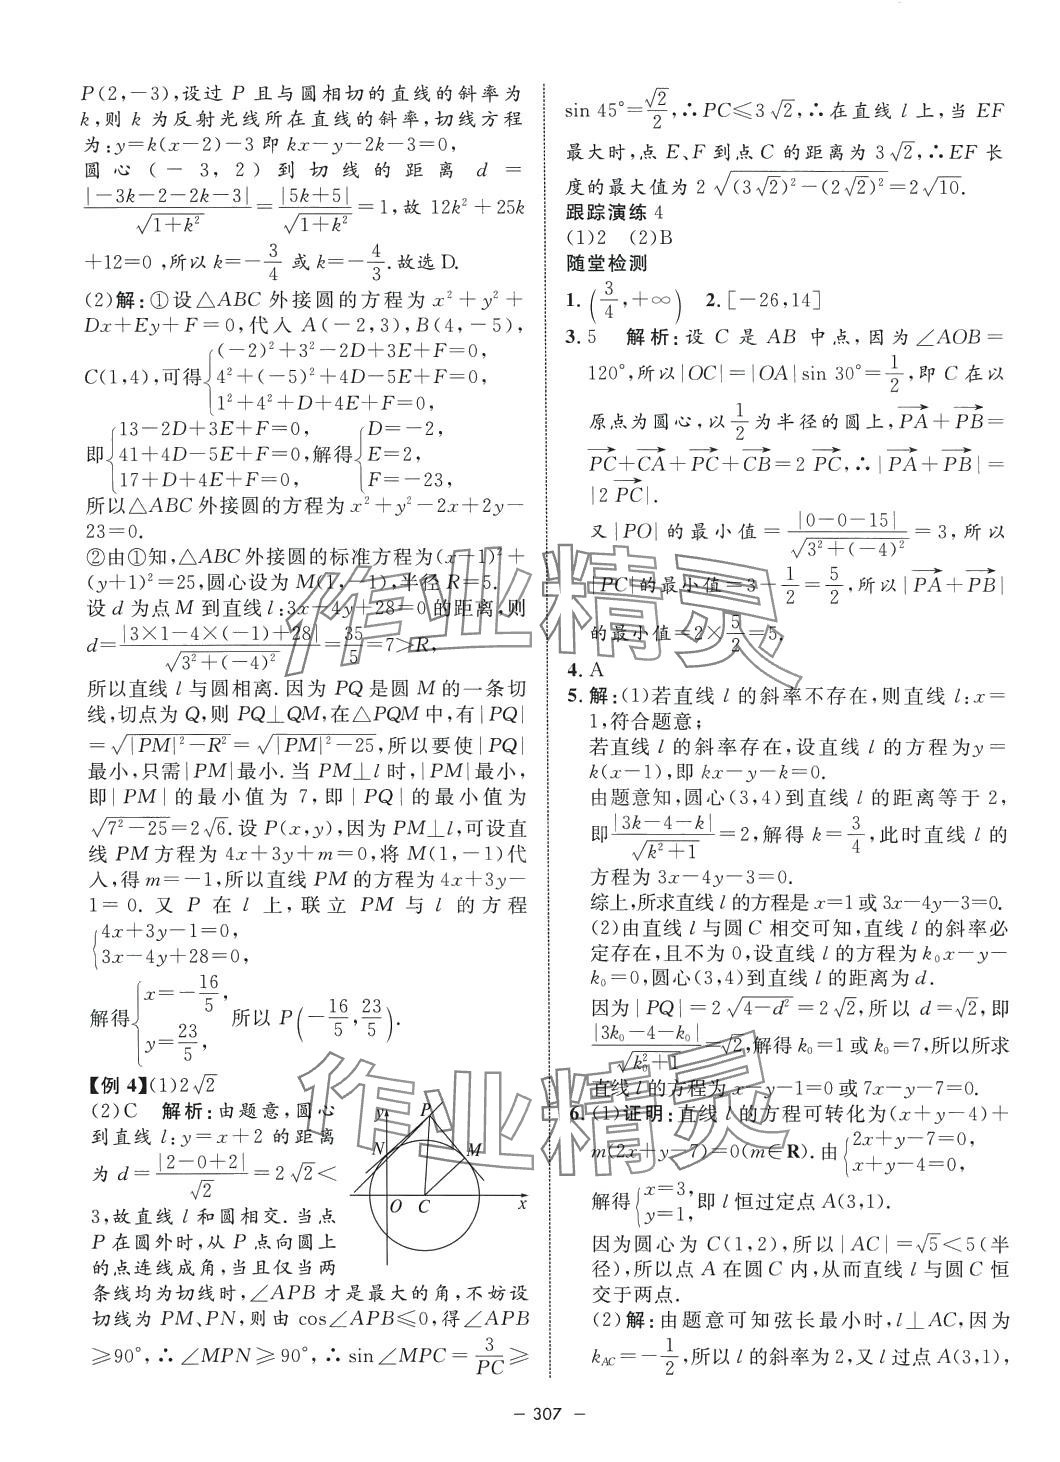 P(2,-3),设过 P 且与圆相切的直线的斜率为
k,则 k 为反射光线所在直线的斜率,切线方程
为:y=k(x-2)-3 即 kx-y-2k-3=0,
圆心(-3,2)到切线的距离 d=
|-3k-2-2k-3|/√(1+k²)=|5k+5|/√(1+k²)=1,故 12k²+25k
+12=0,所以 k=-3/4 或 k=-4/3.故选 D.
(2)解:①设△ABC 外接圆的方程为 x²+y²+
Dx+Ey+F=0,代入 A(-2,3),B(4,-5),
C(1,4),可得{(-2)²+3²-2D+3E+F=0,
4²+(-5)²+4D-5E+F=0,
1²+4²+D+4E+F=0,
即{13-2D+3E+F=0,
41+4D-5E+F=0,
17+D+4E+F=0,
解得{D=-2,
E=2,
F=-23,
所以△ABC 外接圆的方程为 x²+y²-2x+2y-
23=0.
②由①知,△ABC 外接圆的标准方程为(x-1)²+
(y+1)²=25,圆心设为 M(1,-1),半径 R=5.
设 d 为点 M 到直线 l:3x-4y+28=0 的距离,则
d=|3×1-4×(-1)+28|/√(3²+(-4)²)=35/5=7>R,
所以直线 l 与圆相离.因为 PQ 是圆 M 的一条切
线,切点为 Q,则 PQ⊥QM,在△PQM 中,有|PQ|
=√(|PM|²-R²)=√(|PM|²-25),所以要使|PQ|
最小,只需|PM|最小.当 PM⊥l 时,|PM|最小,
即|PM|的最小值为 7,即|PQ|的最小值为
√(7²-25)=2√6.设 P(x,y),因为 PM⊥l,可设直
线 PM 方程为 4x+3y+m=0,将 M(1,-1)代
入,得 m=-1,所以直线 PM 的方程为 4x+3y-
1=0.又 P 在 l 上,联立 PM 与 l 的方程
{4x+3y-1=0,
3x-4y+28=0,
解得{x=-16/5,
y=23/5,
所以 P(-16/5,23/5).
【例 4】(1)2√2
(2)C 解析:由题意,圆心
到直线 l:y=x+2 的距离
为 d=|2-0+2|/√2=2√2<
3,故直线 l 和圆相交.当点
P 在圆外时,从 P 点向圆上
的点连线成角,当且仅当两
条线均为切线时,∠APB 才是最大的角,不妨设
切线为 PM、PN,则由 cos∠APB≤0,得∠APB
≥90°,∴∠MPN≥90°,∴sin∠MPC=3/PC≥
y
P
N
M
O
C
x
sin 45°=√2/2,∴PC≤3√2,∴在直线 l 上,当 EF
最大时,点 E、F 到点 C 的距离为 3√2,∴EF 长
度的最大值为 2√((3√2)²-(2√2)²)=2√10.
跟踪演练 4
(1)2 (2)B
随堂检测
1.(3/4,+∞) 2.[-26,14]
3.5 解析:设 C 是 AB 中点,因为∠AOB=
120°,所以|OC|=|OA|sin 30°=1/2,即 C 在以
原点为圆心,以1/2为半径的圆上,PA→+PB→=
PC→+CA→+PC→+CB→=2PC→,∴|PA→+PB→|=
|2PC→|.
又|PO|的最小值=|0-0-15|/√(3²+(-4)²)=3,所以
|PC→|的最小值=3-1/2=5/2,所以|PA→+PB→|
的最小值=2×5/2=5.
4.A
5.解:(1)若直线 l 的斜率不存在,则直线 l:x=
1,符合题意;
若直线 l 的斜率存在,设直线 l 的方程为 y=
k(x-1),即 kx-y-k=0.
由题意知,圆心(3,4)到直线 l 的距离等于 2,
即|3k-4-k|/√(k²+1)=2,解得 k=3/4,此时直线 l 的
方程为 3x-4y-3=0.
综上,所求直线 l 的方程是 x=1 或 3x-4y-3=0.
(2)由直线 l 与圆 C 相交可知,直线 l 的斜率必
定存在,且不为 0,设直线 l 的方程为 k₀x-y-
k₀=0,圆心(3,4)到直线 l 的距离为 d.
因为|PQ|=2√(4-d²)=2√2,所以 d=√2,即
|3k₀-4-k₀|/√(k₀²+1)=√2,解得 k₀=1 或 k₀=7,所以所求
直线 l 的方程为 x-y-1=0 或 7x-y-7=0.
6.(1)证明:直线 l 的方程可转化为(x+y-4)+
m(2x+y-7)=0(m∈R).由{2x+y-7=0,
x+y-4=0,
解得{x=3,
y=1,
即 l 恒过定点 A(3,1).
因为圆心为 C(1,2),所以|AC|=√5<5(半
径),所以点 A 在圆 C 内,从而直线 l 与圆 C 恒
交于两点.
(2)解:由题意可知弦长最小时,l⊥AC,因为
k_AC=-1/2,所以 l 的斜率为 2,又 l 过点 A(3,1),
- 307 -
作业精灵
作业精灵